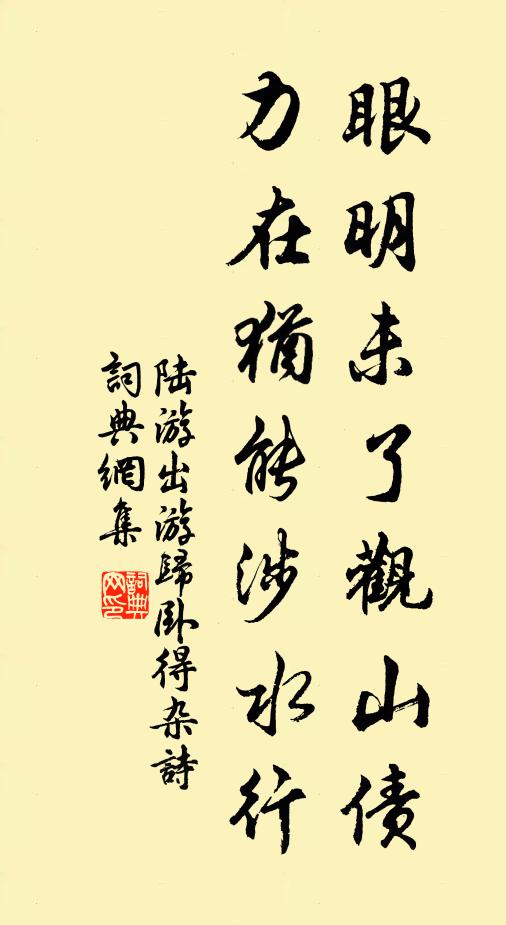 眼明未了觀山債
力在猶能涉水行
陆游出游歸卧得杂詩
詞典網集
詞典网印